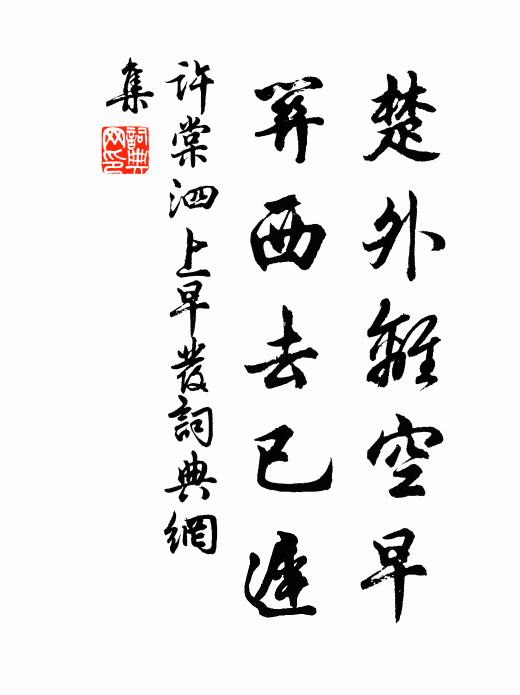 楚外離空早
關西去已遲
許棠泗上早發詞典網
集
詞典
网印